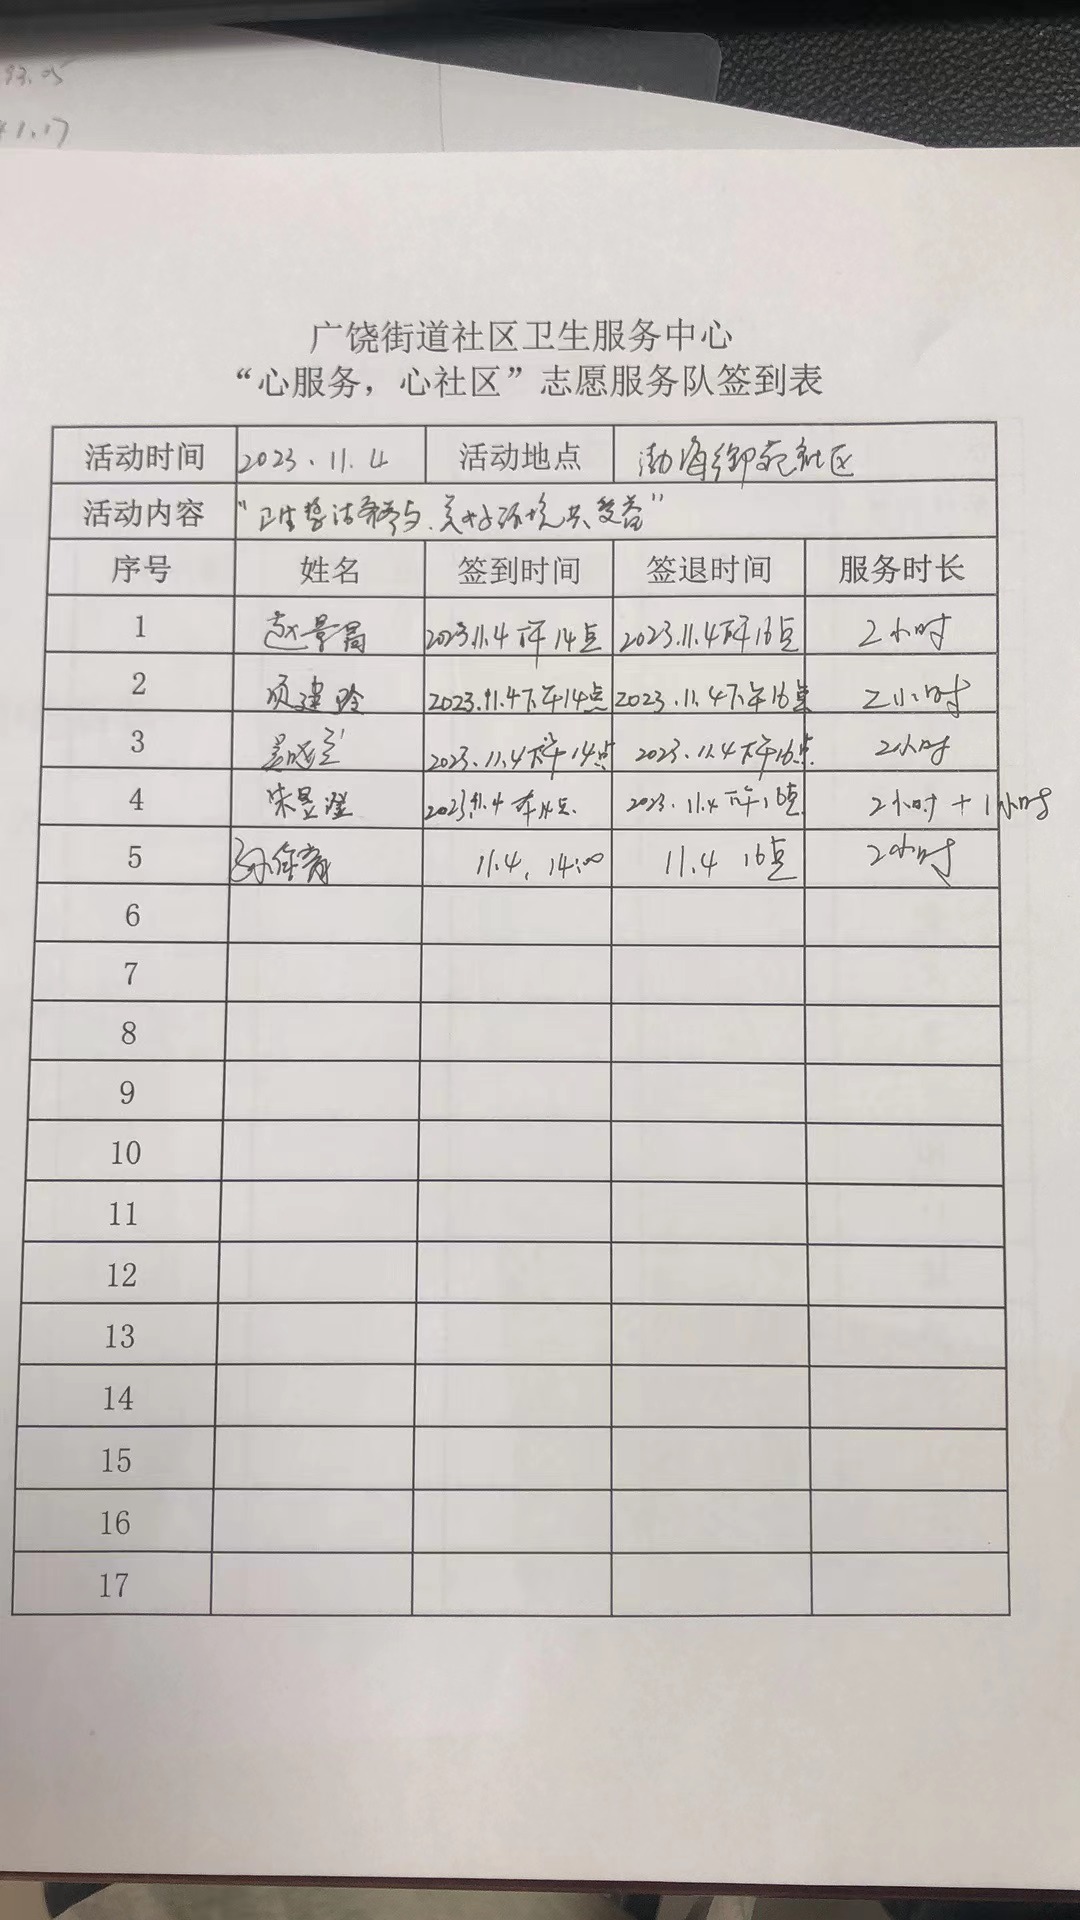 93.05
1.17
广饶街道社区卫生服务中心
“心服务，心社区”志愿服务队签到表
活动时间 2023.11.4 活动地点 渤海御苑社区
活动内容 “卫生整洁我参与，美好环境共受益”
序号 姓名 签到时间 签退时间 服务时长
1 赵景昌 2023.11.4 下午14点 2023.11.4下午16点 2小时
2 项建玲 2023.11.4下午14点 2023.11.4下午16点 2小时
3 2023.11.4下午14点 2023.11.4下午16点 2小时
4 朱昱澄 2023.11.4 下午14点 2023.11.4 下午16点 2小时+1小时
5 11.4, 14:00 11.4 16点 2小时
6
7
8
9
10
11
12
13
14
15
16
17